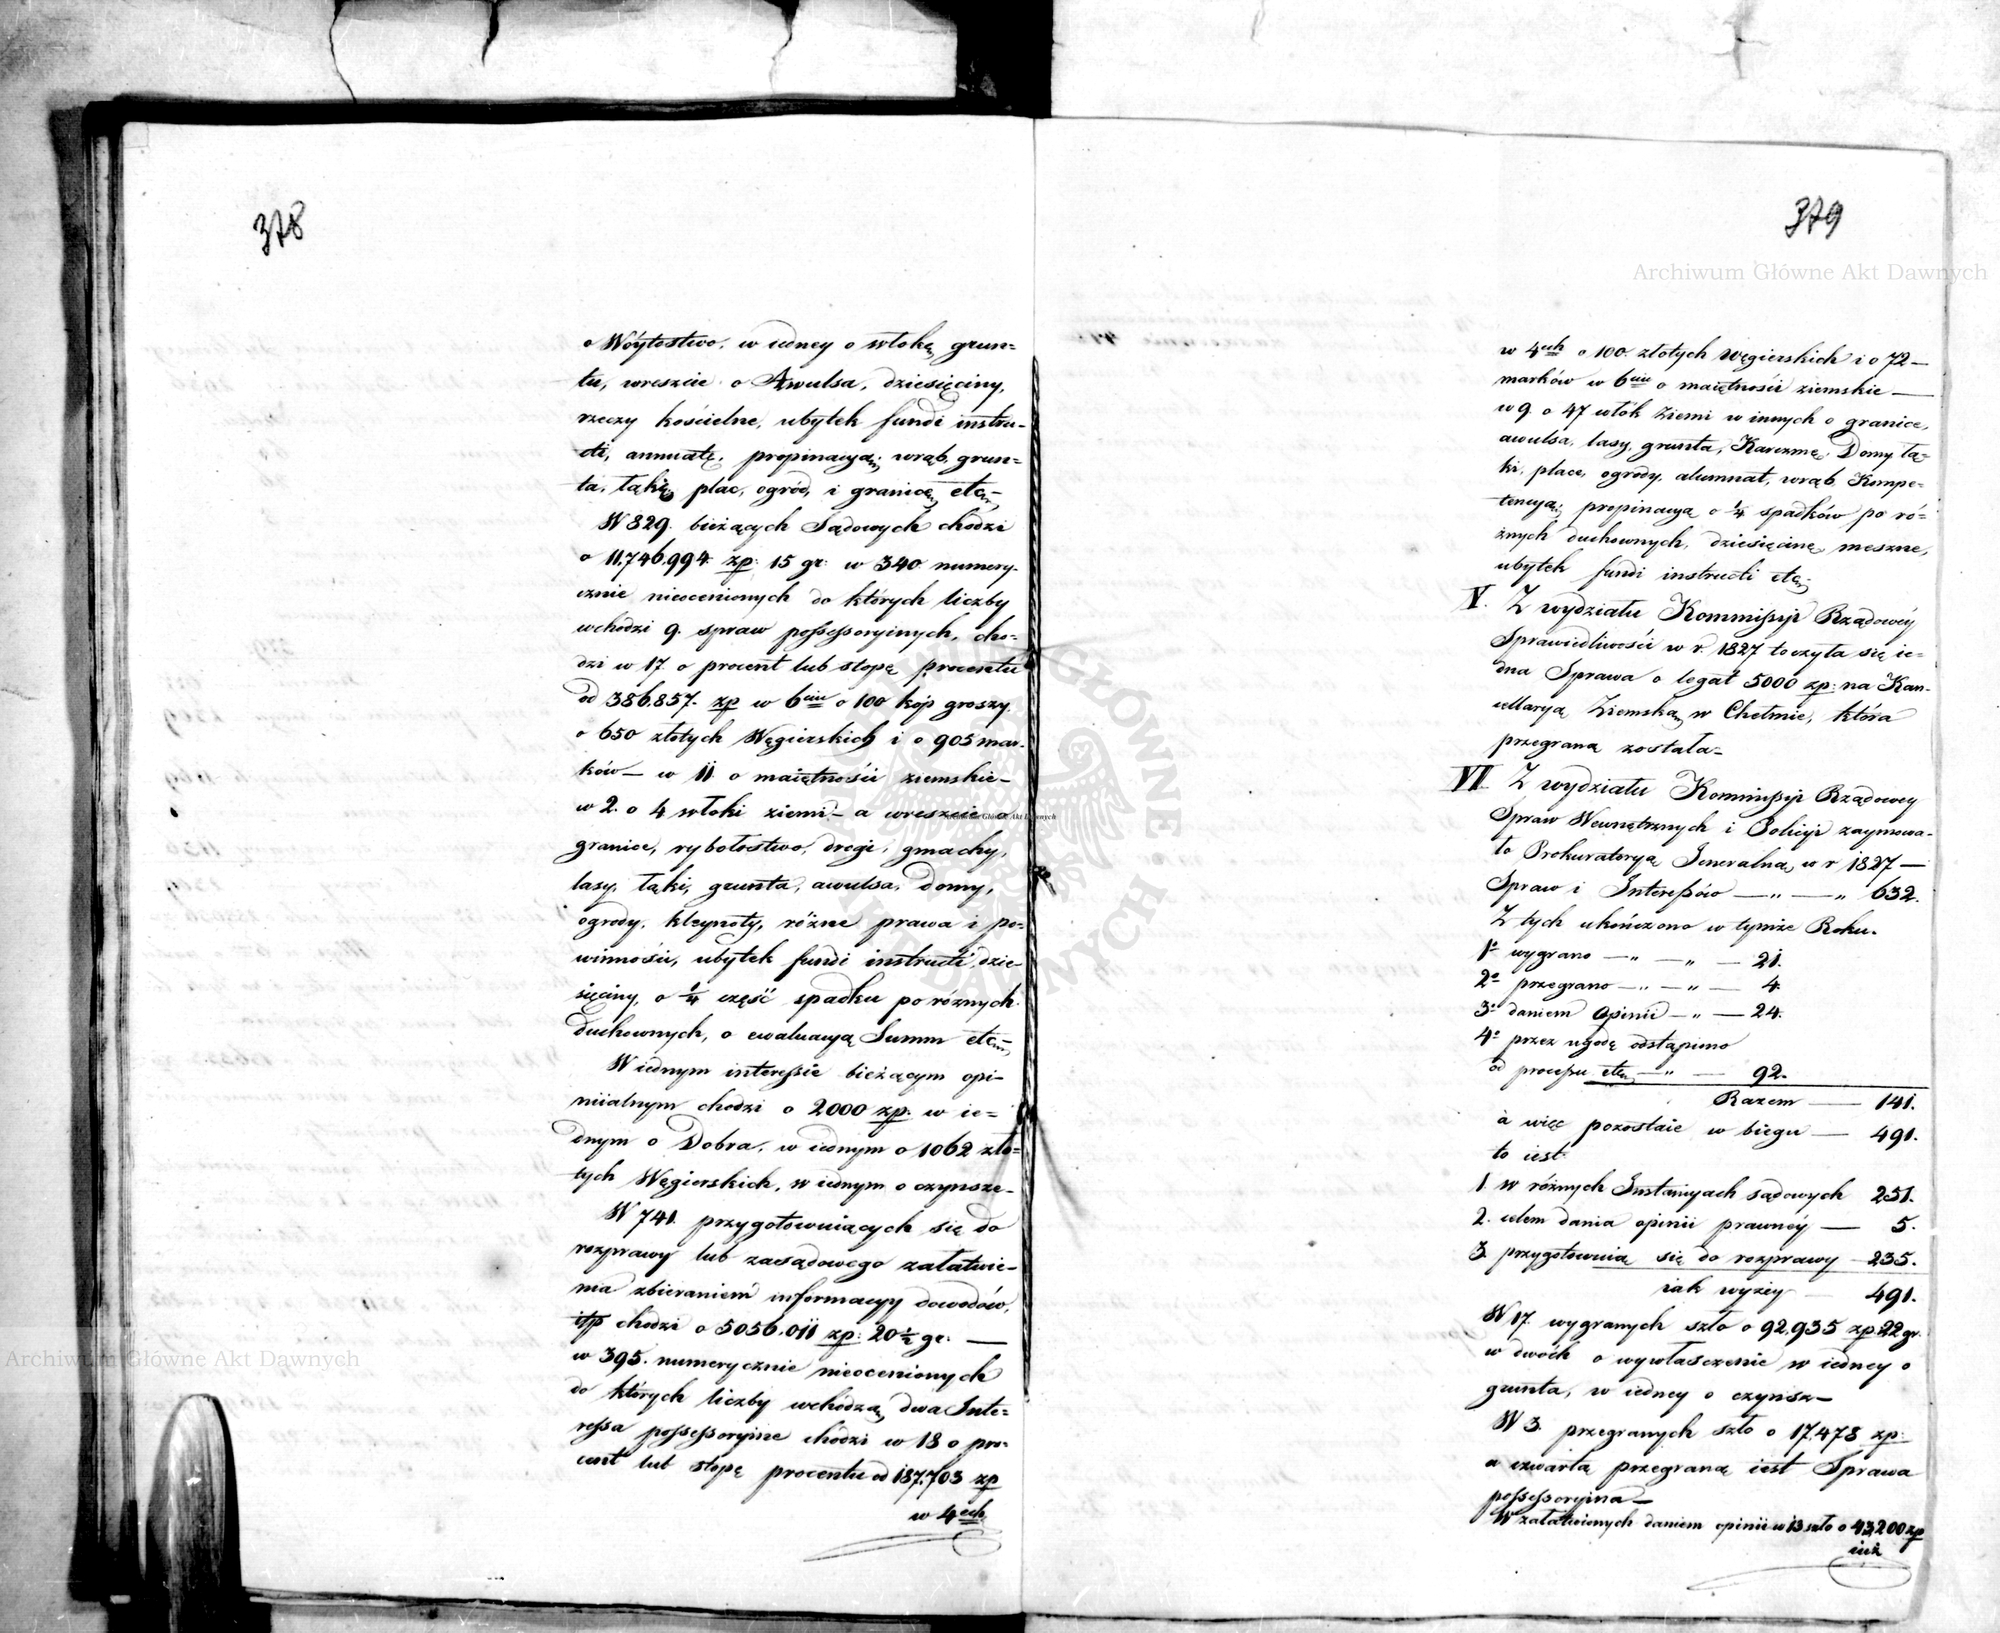 378
o Wóytostwo, w iedney o włokę grun=
tu, wreszcie o Awulsa, dziesięciny,
rzeczy kościelne, ubytek fundi instru-
cti, annuatę, propinacyą, wrąb, grun=
ta, łąkę, plac, ogród, i granicę, etc.
W 829. bieżących Sądowych chodzi
o 11,746,994. zp: 15 gr: w 340 numery-
cznie nieocenionych do których liczby
wchodzi 9. spraw possessoryinych, cho-
dzi w 17. o procent lub stopę procentu
od 386,857. zp w 6ciu o 100 kóp groszy.
o 650 złotych Węgierskich i o 905 mar-
ków — w 11. o maiętności ziemskie —
w 2. o 4 włoki ziemi — a wreszcie o
granice, rybołostwo, drogi, gmachy,
lasy, łąki, grunta, awulsa, domy,
ogrody, kleynoty, różne prawa i po=
winności, ubytek fundi instructi, dzie-
sięciny, o ¼ część spadku po różnych
duchownych, o ewaluacyą Summ etc.
W iednym interessie bieżącym opi-
niialnym chodzi o 2000 zp. w ie=
dnym o Dobra, w iednym o 1062 zło=
tych Węgierskich, w iednym o czynsze —
W 741. przygotowuiących się do
rozprawy lub zasądowego załatwie-
nia zbieraniem informacyy dowodów,
itp chodzi o 5056,011 zp: 20½ gr: —
w 395. numerycznie nieocenionych
do których liczby wchodzą, dwa Inte=
ressa possessoryine chodzi w 18 o pro-
cent lub stopę procentu od 187,703 zp
w 4ech
379
w 4ech o 100. złotych węgierskich i o 72 —
marków w 6ciu o maiętności ziemskie —
w 9. o 47 włók ziemi w innych o granice,
awulsa, lasy, grunta, Karczmę, Domy, łą=
ki, place, ogrody, alumnat, wrąb Kompe=
tencyą, propinacyą o ¼ spadków po ró=
żnych duchownych, dziesięcinę meszne,
ubytek fundi instructi etc.
V. Z wydziału Kommissyi Rządowéy
Sprawiedliwości w r. 1827 toczyła się ie=
dna Sprawa o legat 5000 zp: na Kan-
cellaryą Ziemską w Chełmie, która
przegraną została —
VI. Z wydziału Kommissyi Rządowey
Spraw Wewnętrznych i Policyi zaymowa-
ło Prokuratoryą Jeneralną w r 1827 —
Spraw i Interessów — „ — „ 632.
Z tych ukończono w tymże Roku.
1o wygrano — „ — „ — 21.
2o przegrano — „ — „ — 4.
3o daniem Opinii — „ — 24.
4o przez ugodę odstąpiono
od processu etc. — „ — 92.
Razem — 141.
a więc pozostaie w biegu — 491.
to iest
1. w różnych Instancyach sądowych 251.
2. celem dania opinii prawnéy — 5.
3. przygotowuią się do rozprawy — 235.
iak wyżey — 491.
W 17. wygranych szło o 92,935 zp. 22 gr.
w dwóch o wywłaszczenie w iedney o
grunta, w iedney o czynsz —
W 3. przegranych szło o 17,478 zp:
a czwartą przegraną iest Sprawa
possessoryina —
W załatwionych daniem opinii w 13 szło o 43,200 zp
iuż
Archiwum Główne Akt Dawnych
Archiwum Główne Akt Dawnych
Archiwum Główne Akt Dawnych